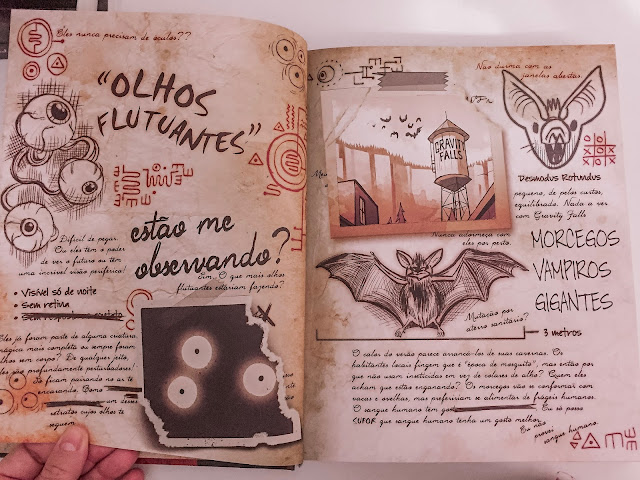 Eles nunca precisam de óculos??
"OLHOS
FLUTUANTES"
estão me
observando?
Sim. O que mais olhos
flutuantes estariam fazendo?
Difícil de pegar.
Ou eles tem o poder
de ver o futuro ou têm
uma incrível visão periférica!
• Visível só de noite
• Sem retina
Eles já foram parte de alguma criatura
mágica mais completa ou sempre foram
olhos sem corpo? De qualquer jeito,
eles são profundamente perturbadores!
Só ficam pairando no ar te
encarando. Como
em um desses
retratos cujos olhos te
seguem.
Não durma com as
janelas abertas.
GRAVITY
FALLS
Nunca adormeça com
eles por perto.
Desmodus Rotundus
pequeno, de pelos curtos,
equilibrado. Nada a ver
com Gravity Falls
MORCEGOS
VAMPIROS
GIGANTES
Mutação por
aterro sanitário?
3 metros
O calor do verão parece arrancá-los de suas cavernas. Os
habitantes locais fingem que é "época de mosquito", mas então por
que não usam inseticidas em vez de colares de alho? Quem eles
acham que estão enganando? Os morcegos vão se conformar com
vacas e ovelhas, mas prefeririam se alimentar de frágeis humanos.
O sangue humano tem gosto Eu só posso
SUPOR que sangue humano tenha um gosto melhor.
Eu não
provei
sangue humano.